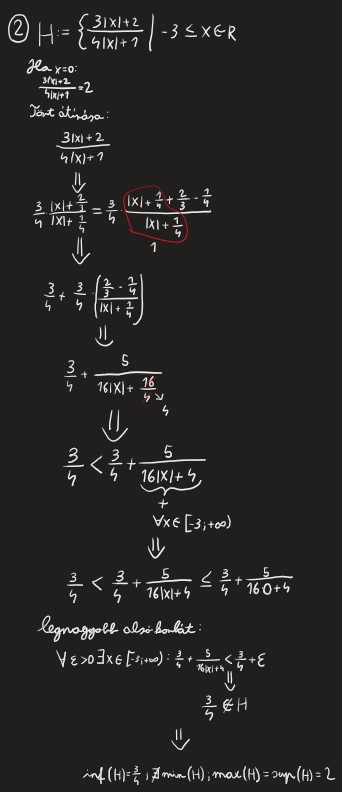 ② H := { (3|x|+2)/(4|x|+1) | -3 ≤ x ∈ R
Ha x=0:
(3|x|+2)/(4|x|+1) = 2
Tört átírása:
(3|x|+2)/(4|x|+1)
⇓
3/4 · (|x|+2/3)/(|x|+1/4) = 3/4 · (|x|+1/4+2/3-1/4)/(|x|+1/4)
1
⇓
3/4 + 3/4 · ((2/3-1/4)/(|x|+1/4))
⇓
3/4 + 5/(16|x|+16/4)
4
⇓
3/4 < 3/4 + 5/(16|x|+4)
+
∀x∈[-3;+∞)
⇓
3/4 < 3/4 + 5/(16|x|+4) ≤ 3/4 + 5/(16·0+4)
legnagyobb alsó korlát:
∀ε>0 ∃x∈[-3;+∞): 3/4 + 5/(16|x|+4) < 3/4 + ε
⇓
3/4 ∉ H
⇓
inf(H)=3/4; ∄min(H); max(H)=sup(H)=2